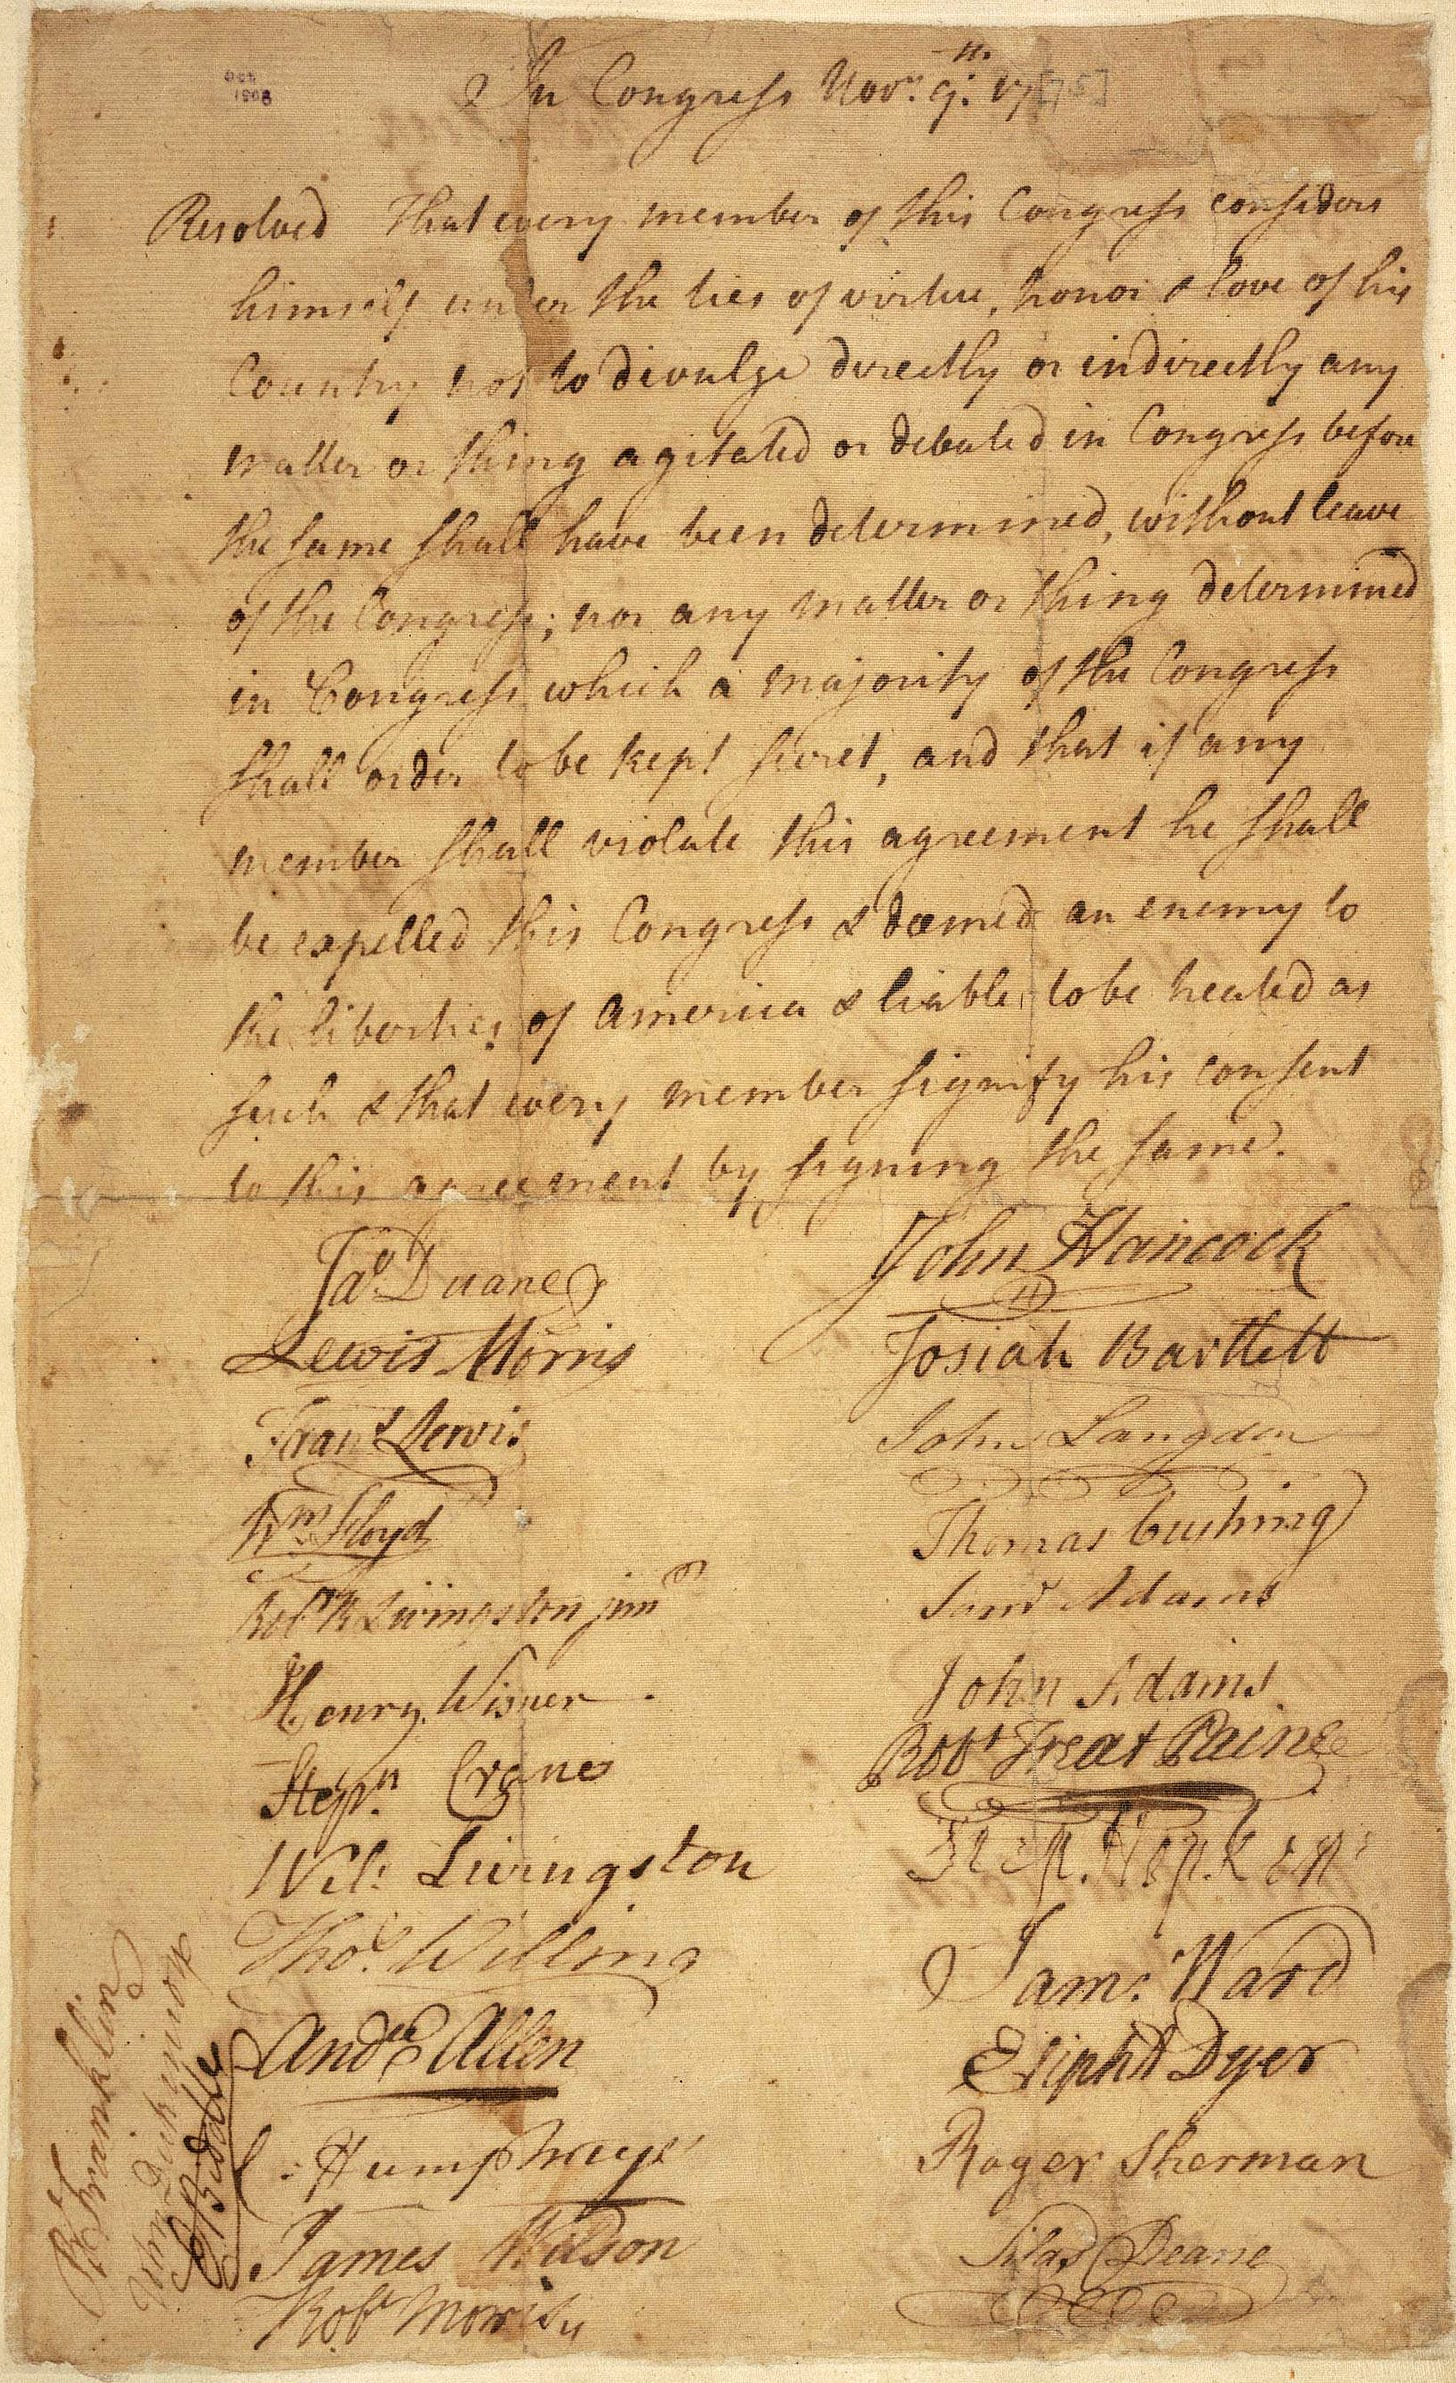 In Congress Novr. 9th. 17[75]
Resolved That every member of this Congress considers
himself under the ties of virtue, honor & love of his
Country not to divulge directly or indirectly any
matter or thing agitated or debated in Congress before
the same shall have been determined, without leave
of the Congress; nor any matter or thing determined
in Congress which a majority of the Congress
shall order to be kept secret, and that if any
member shall violate this agreement he shall
be expelled this Congress & deemed an enemy to
the liberties of America & liable to be treated as
such & that every member signify his consent
to this agreement by signing the same.
Jas Duane
Lewis Morris
Frans Lewis
Wm Floyd
Robt R Livingston junr
Henry Wisner
Stepn Crane
Wil: Livingston
Thos Willing
Andw Allen
C: Humphreys
James Wilson
Robt Morris
John Hancock
Josiah Bartlett
John Langdon
Thomas Cushing
Saml Adams
John Adams
Robt Treat Paine
Step. Hopkins
Sam: Ward
Elipht Dyer
Roger Sherman
Silas Deane
B Franklin
John Dickinson
E Biddle